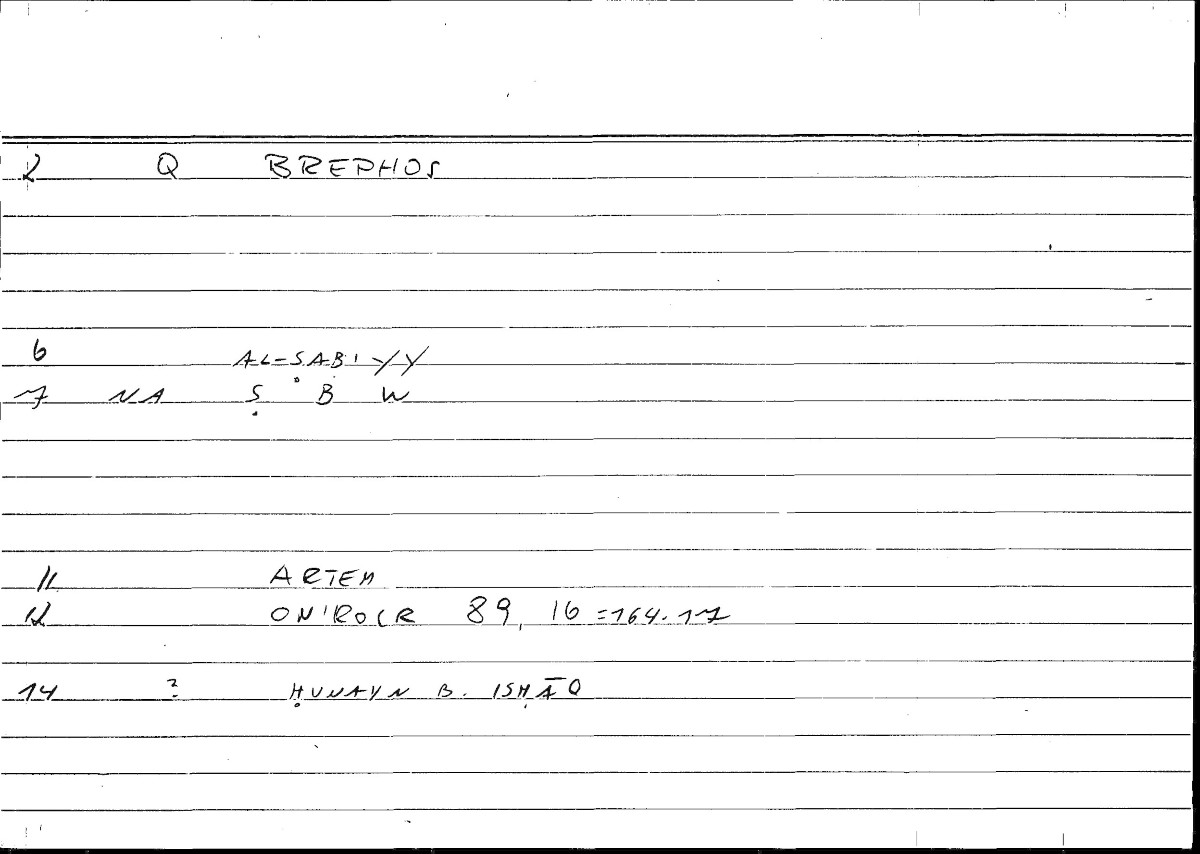 2 Q BREPHOS
6 AL-ṢABIYY
7 NA Ṣ B W
11 ARTEM
12 ONIROCR 89, 16 = 164.17
14 ? ḤUNAYN B. ISḤĀQ